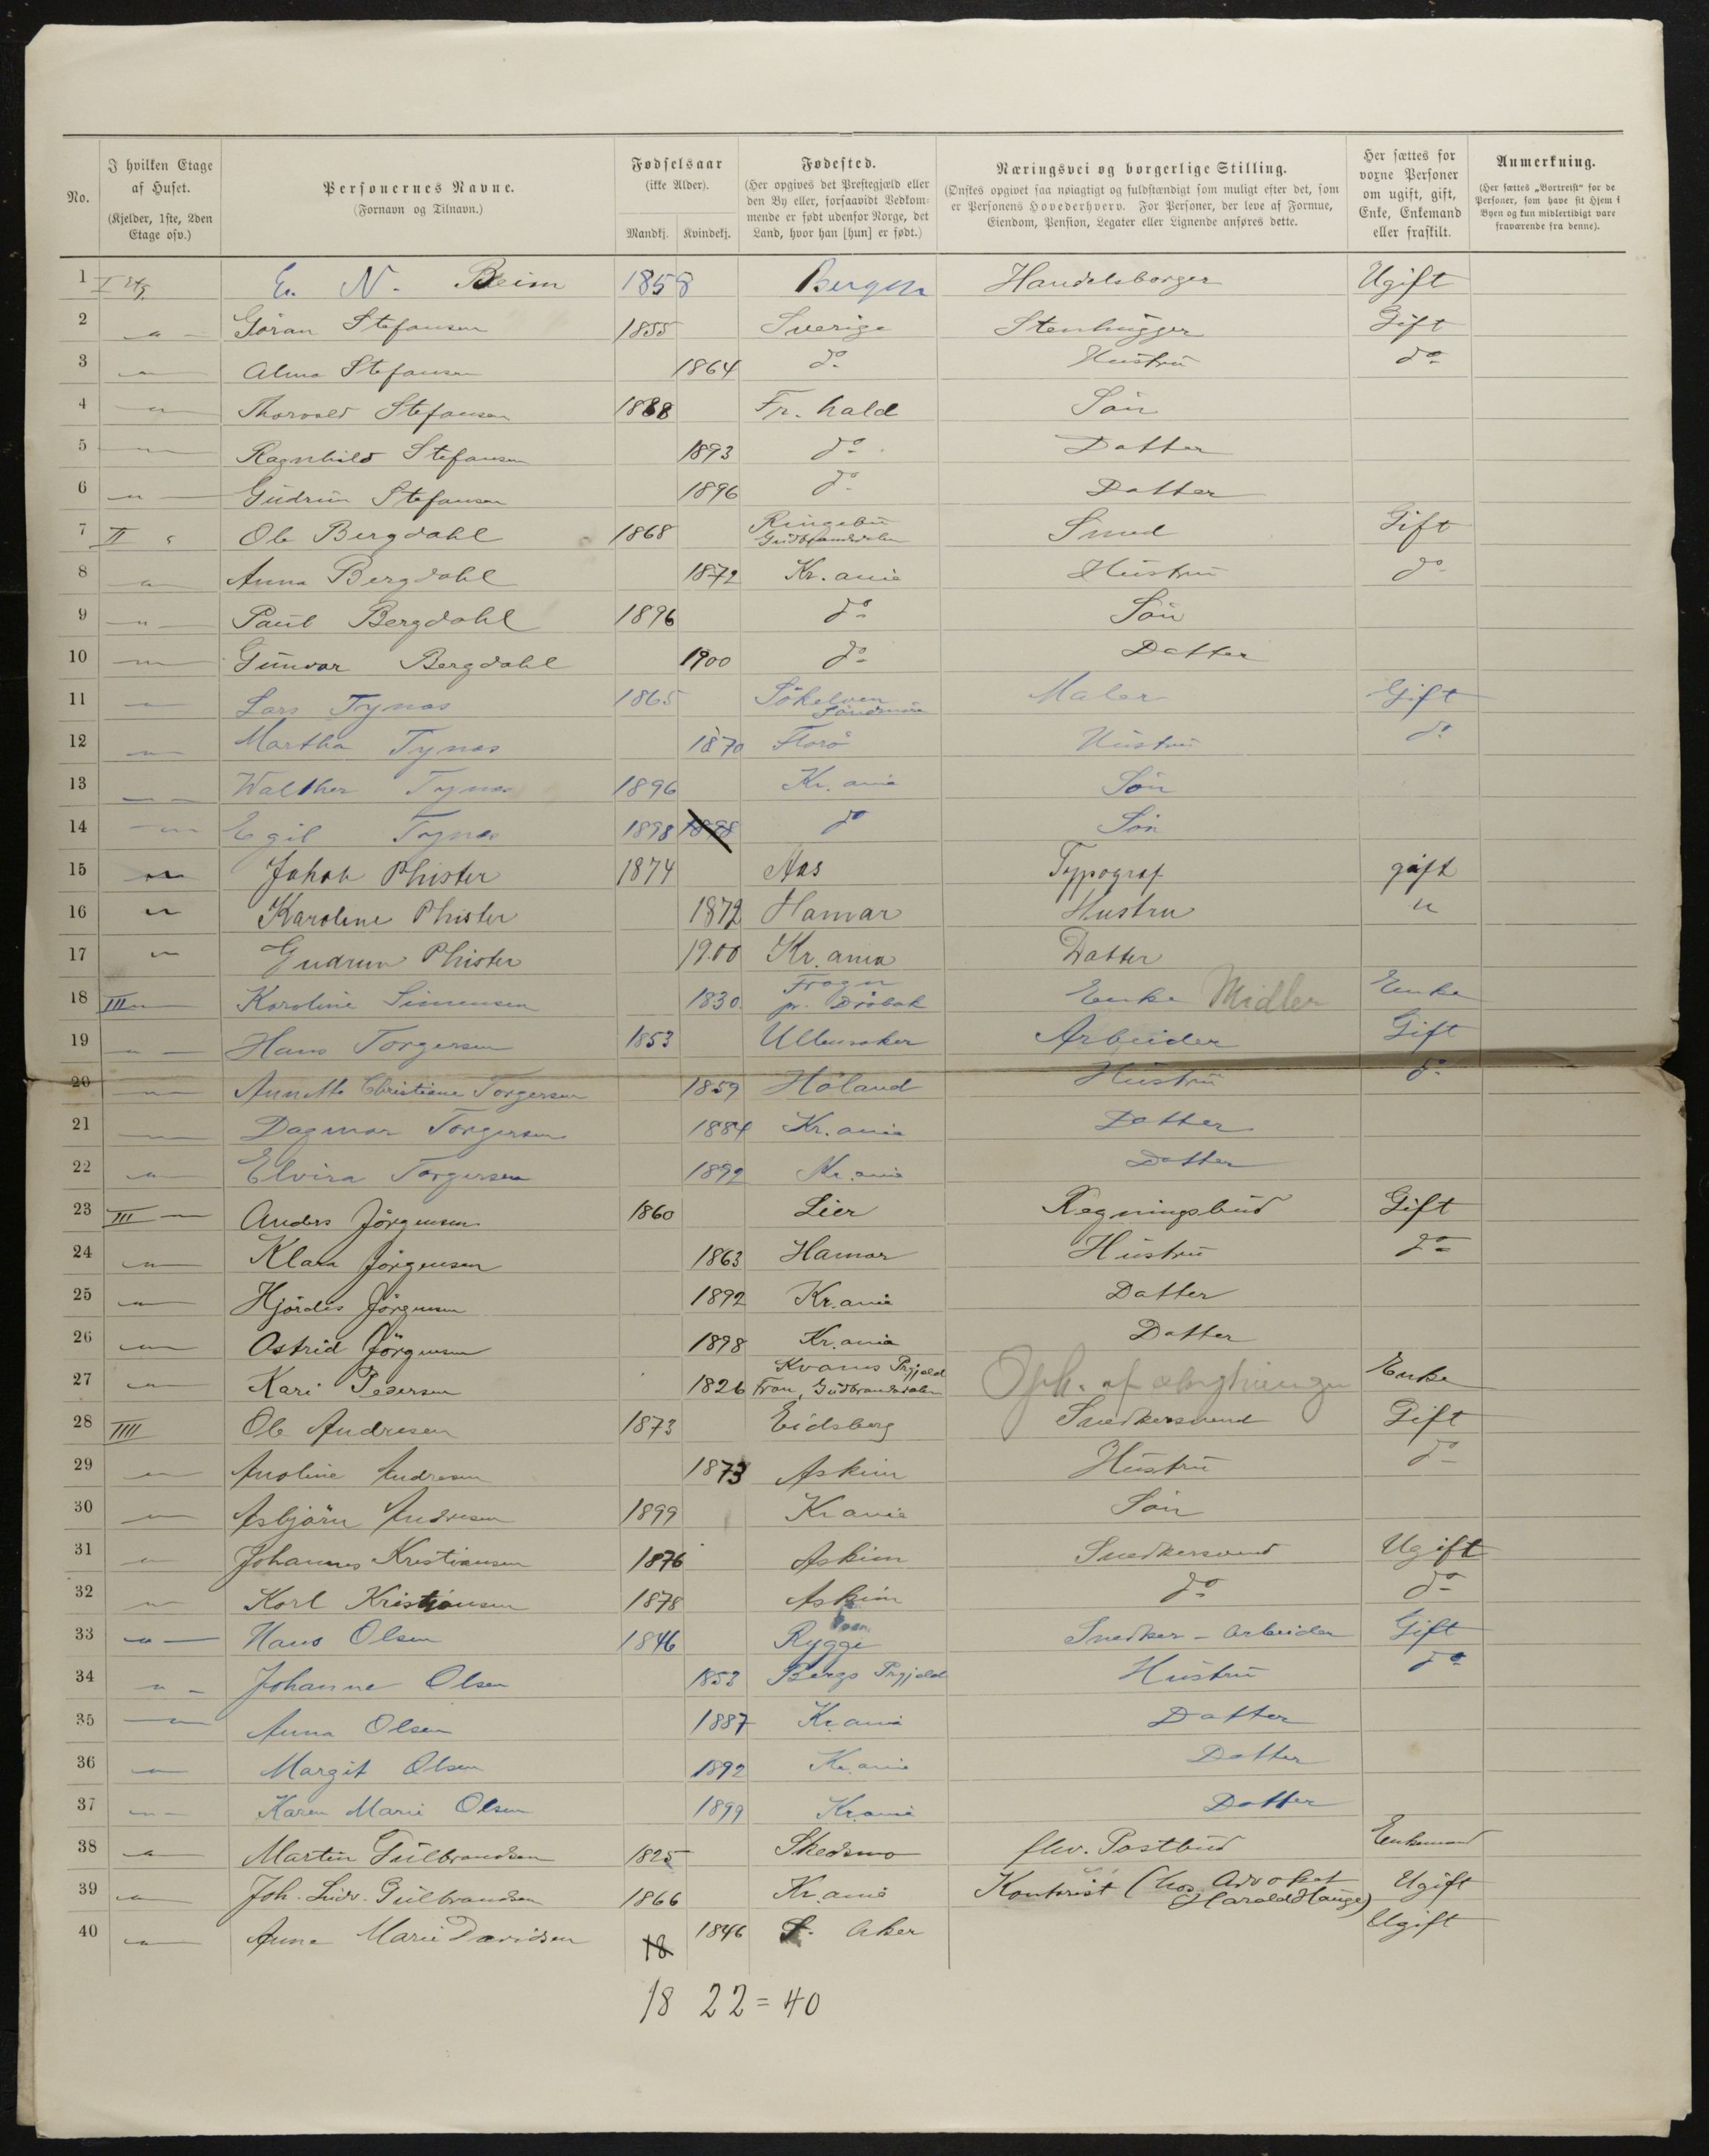 No.
I hvilken Etage af Huset.
(Kjelder, 1ste, 2den Etage osv.)
Personernes Navne.
(Fornavn og Tilnavn.)
Fødselsaar
(ikke Alder).
Mandkj. Kvindekj.
Fødested.
(Her opgives det Prestegjæld eller den By eller, forsaavidt Vedkommende er født udenfor Norge, det Land, hvor han [hun] er født.)
Næringsvei og borgerlige Stilling.
(Ønskes opgivet saa nøiagtigt og fuldstændigt som muligt efter det, som er Personens Hovederhverv. For Personer, der leve af Formue, Eiendom, Pension, Legater eller Lignende anføres dette.
Her sættes for voxne Personer om ugift, gift, Enke, Enkemand eller fraskilt.
Anmerkning.
(Her sættes „Bortreist“ for de Personer, som have sit Hjem i Byen og kun midlertidigt vare fraværende fra denne).
1 I Etg E. N. Beim 1858 Bergen Handelsborger Ugift
2 " Göran Stefansen 1855 Sverige Stenhugger Gift
3 " Alma Stefansen 1864 do Hustru do
4 " Thorvald Stefansen 1888 Fr. hald Sön
5 " Ragnhild Stefansen 1893 do Datter
6 " Gudrun Stefansen 1896 do Datter
7 II " Ole Bergdahl 1868 Ringebu Gudbrandsdalen Smed Gift
8 " Anna Bergdahl 1872 Kr. ania Hustru do
9 " Paul Bergdahl 1896 do Sön
10 " Gunvor Bergdahl 1900 do Datter
11 " Lars Tynes 1865 Sökelven Söndmöre Maler Gift
12 " Martha Tynes 1870 Florö Hustru do
13 " Walther Tynes 1896 Kr. ania Sön
14 " Egil Tynes 1898 1898 do Sön
15 " Jakob Phister 1874 Aas Typograf gift
16 " Karoline Phister 1872 Hamar Hustru "
17 " Gudrun Phister 1900 Kr. ania Datter
18 III " Karoline Simensen 1830 Frogn pr. Dröbak Enke Midler Enke
19 " Hans Torgersen 1853 Ullensaker Arbeider Gift
20 " Annette Christiane Torgersen 1859 Höland Hustru do
21 " Dagmar Torgersen 1884 Kr. ania Datter
22 " Elvira Torgersen 1892 Kr. ania Datter
23 III " Anders Jörgensen 1860 Lier Regningsbud Gift
24 " Klara Jörgensen 1863 Hamar Hustru do
25 " Hjördis Jörgensen 1892 Kr. ania Datter
26 " Astrid Jörgensen 1898 Kr. ania Datter
27 " Kari Pedersen 1826 Kvams Prgjeld Fron, Gudbrandsdalen Enke
28 IIII Ole Andresen 1873 Eidsberg Snedkersvend Gift
29 " Anoline Andresen 1873 Askim Hustru do
30 " Asbjörn Andresen 1899 Kr ania Sön
31 " Johannes Kristiansen 1876 Askim Snedkersvend Ugift
32 " Karl Kristiansen 1878 Askim do do
33 " Hans Olsen 1846 Rygge Snedker - Arbeider Gift
34 " Johanne Olsen 1853 Bergs Prgjeld Hustru do
35 " Anna Olsen 1887 Kr. ania Datter
36 " Margit Olsen 1892 Kr. ania Datter
37 " Karen Marie Olsen 1899 Kr. ania Datter
38 " Martin Gulbrandsen 1825 Skedsmo fhv. Postbud Enkemand
39 " Joh. Ludv. Gulbrandsen 1866 Kr. ania Kontorist (hos Advokat Harald Hauge) Ugift
40 " Anne Marie Davidsen 18 1846 Aker Ugift
18 22 = 40